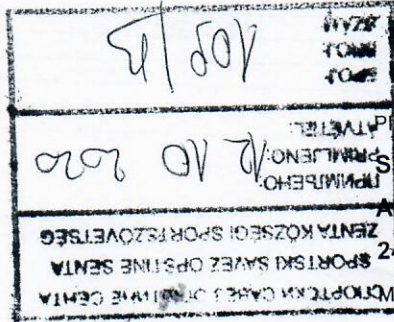 СПОРТСКИ САВЕЗ ОПШТИНЕ СЕНТА
SPORTSKI SAVEZ OPŠTINE SENTA
ZENTA KÖZSÉGI SPORTSZÖVETSÉG
ПРИМЉЕНО:
PRIMLJENO: 12 10 2020
ÁTVÉTEL:
БРОЈ
BROJ
SZÁM